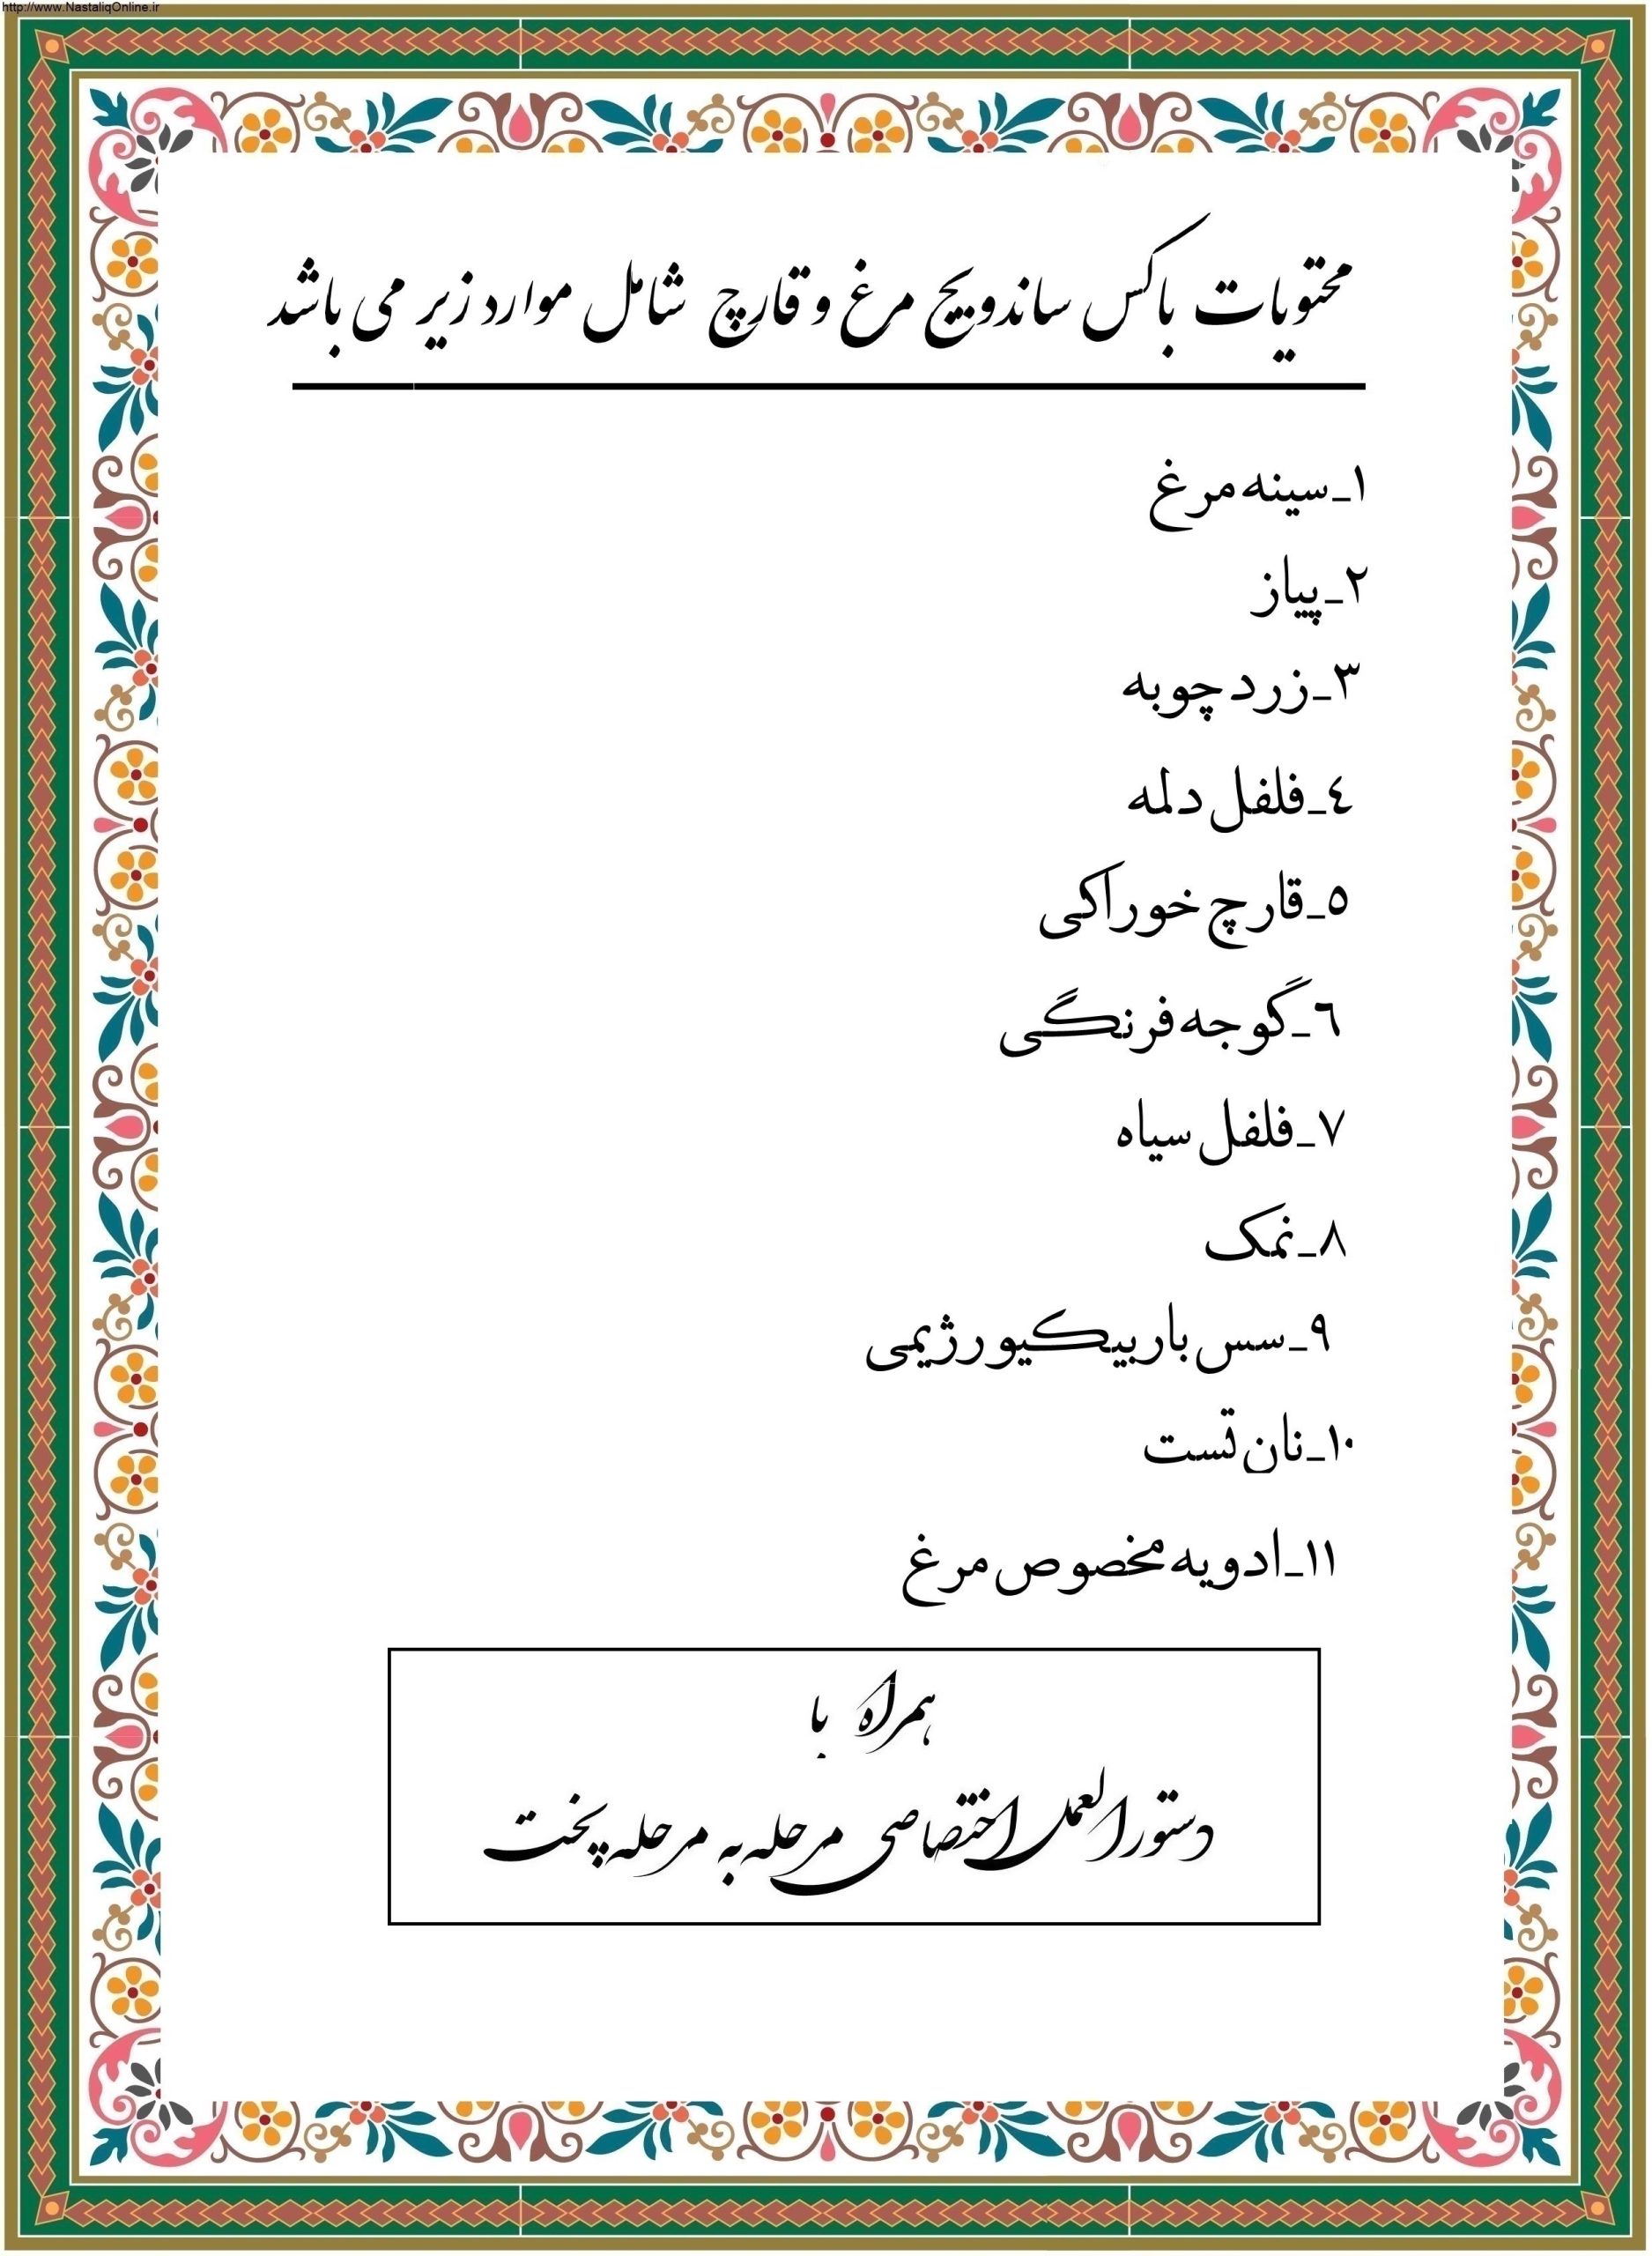 http://www.NastaliqOnline.ir
محتویات باکس ساندویچ مرغ و قارچ شامل موارد زیر می باشد
١_سینه مرغ
٢_پیاز
٣_زردچوبه
٤_فلفل دلمه
٥_قارچ خوراکی
٦_گوجه فرنگی
٧_فلفل سیاه
٨_نمک
٩_سس باربیکیو رژیمی
١٠_نان تست
١١_ادویه مخصوص مرغ
همراه با
دستورالعمل اختصاصی مرحله به مرحله پخت